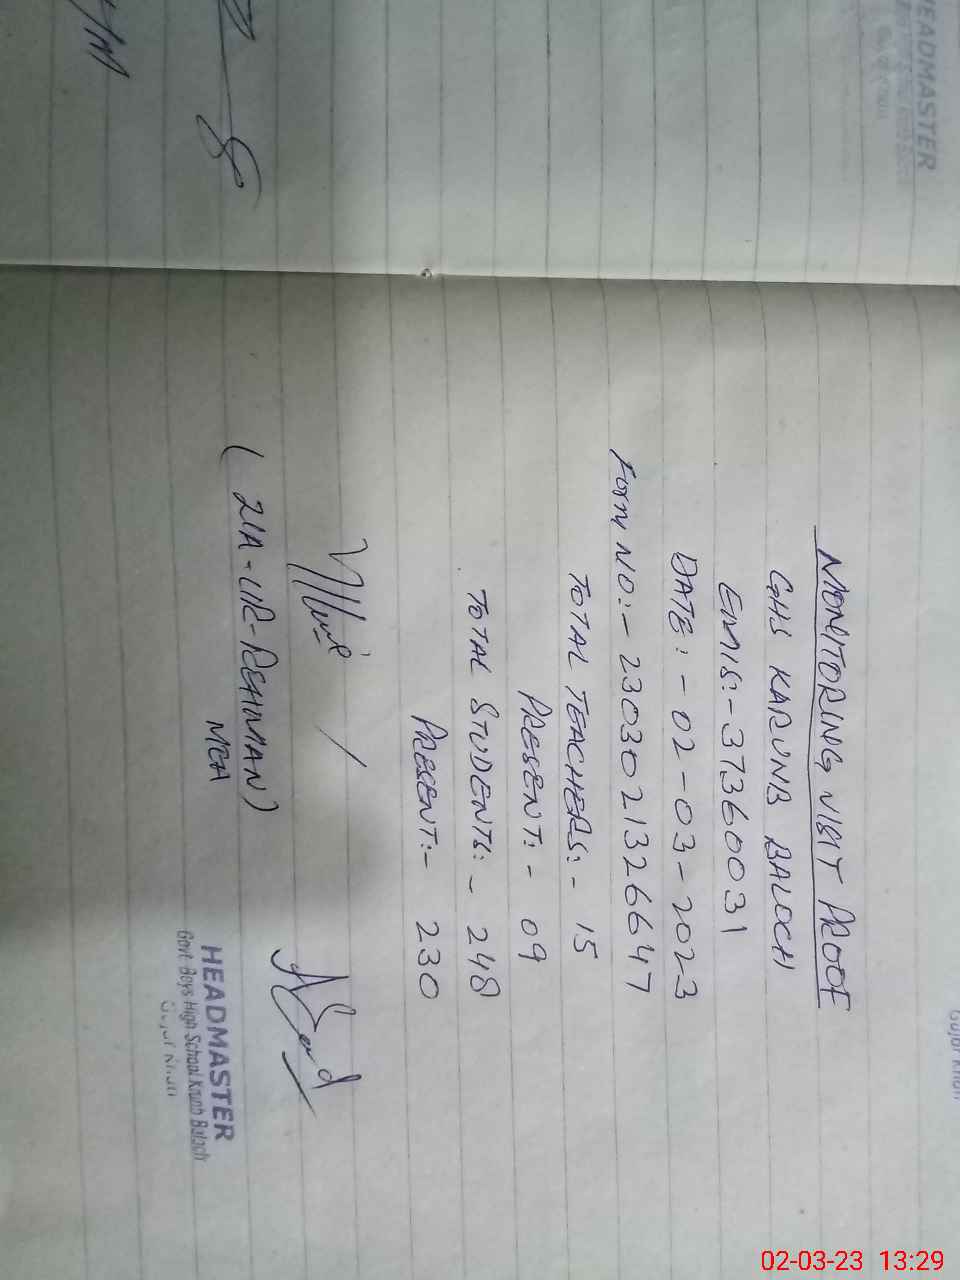 MONITORING VISIT PROOF
GHS KARUNB BALOCH
EMIS:- 37360031
DATE:- 02-03-2023
FORM NO:- 2303021326647
TOTAL TEACHERS:- 15
PRESENT:- 09
TOTAL STUDENTS:- 248
PRESENT:- 230
(ZIA-UR-REHMAN)
MEA
HEADMASTER
Govt. Boys High School Krunb Baloch
Gujar Khan
HEADMASTER
Gujar Khan
02-03-23 13:29